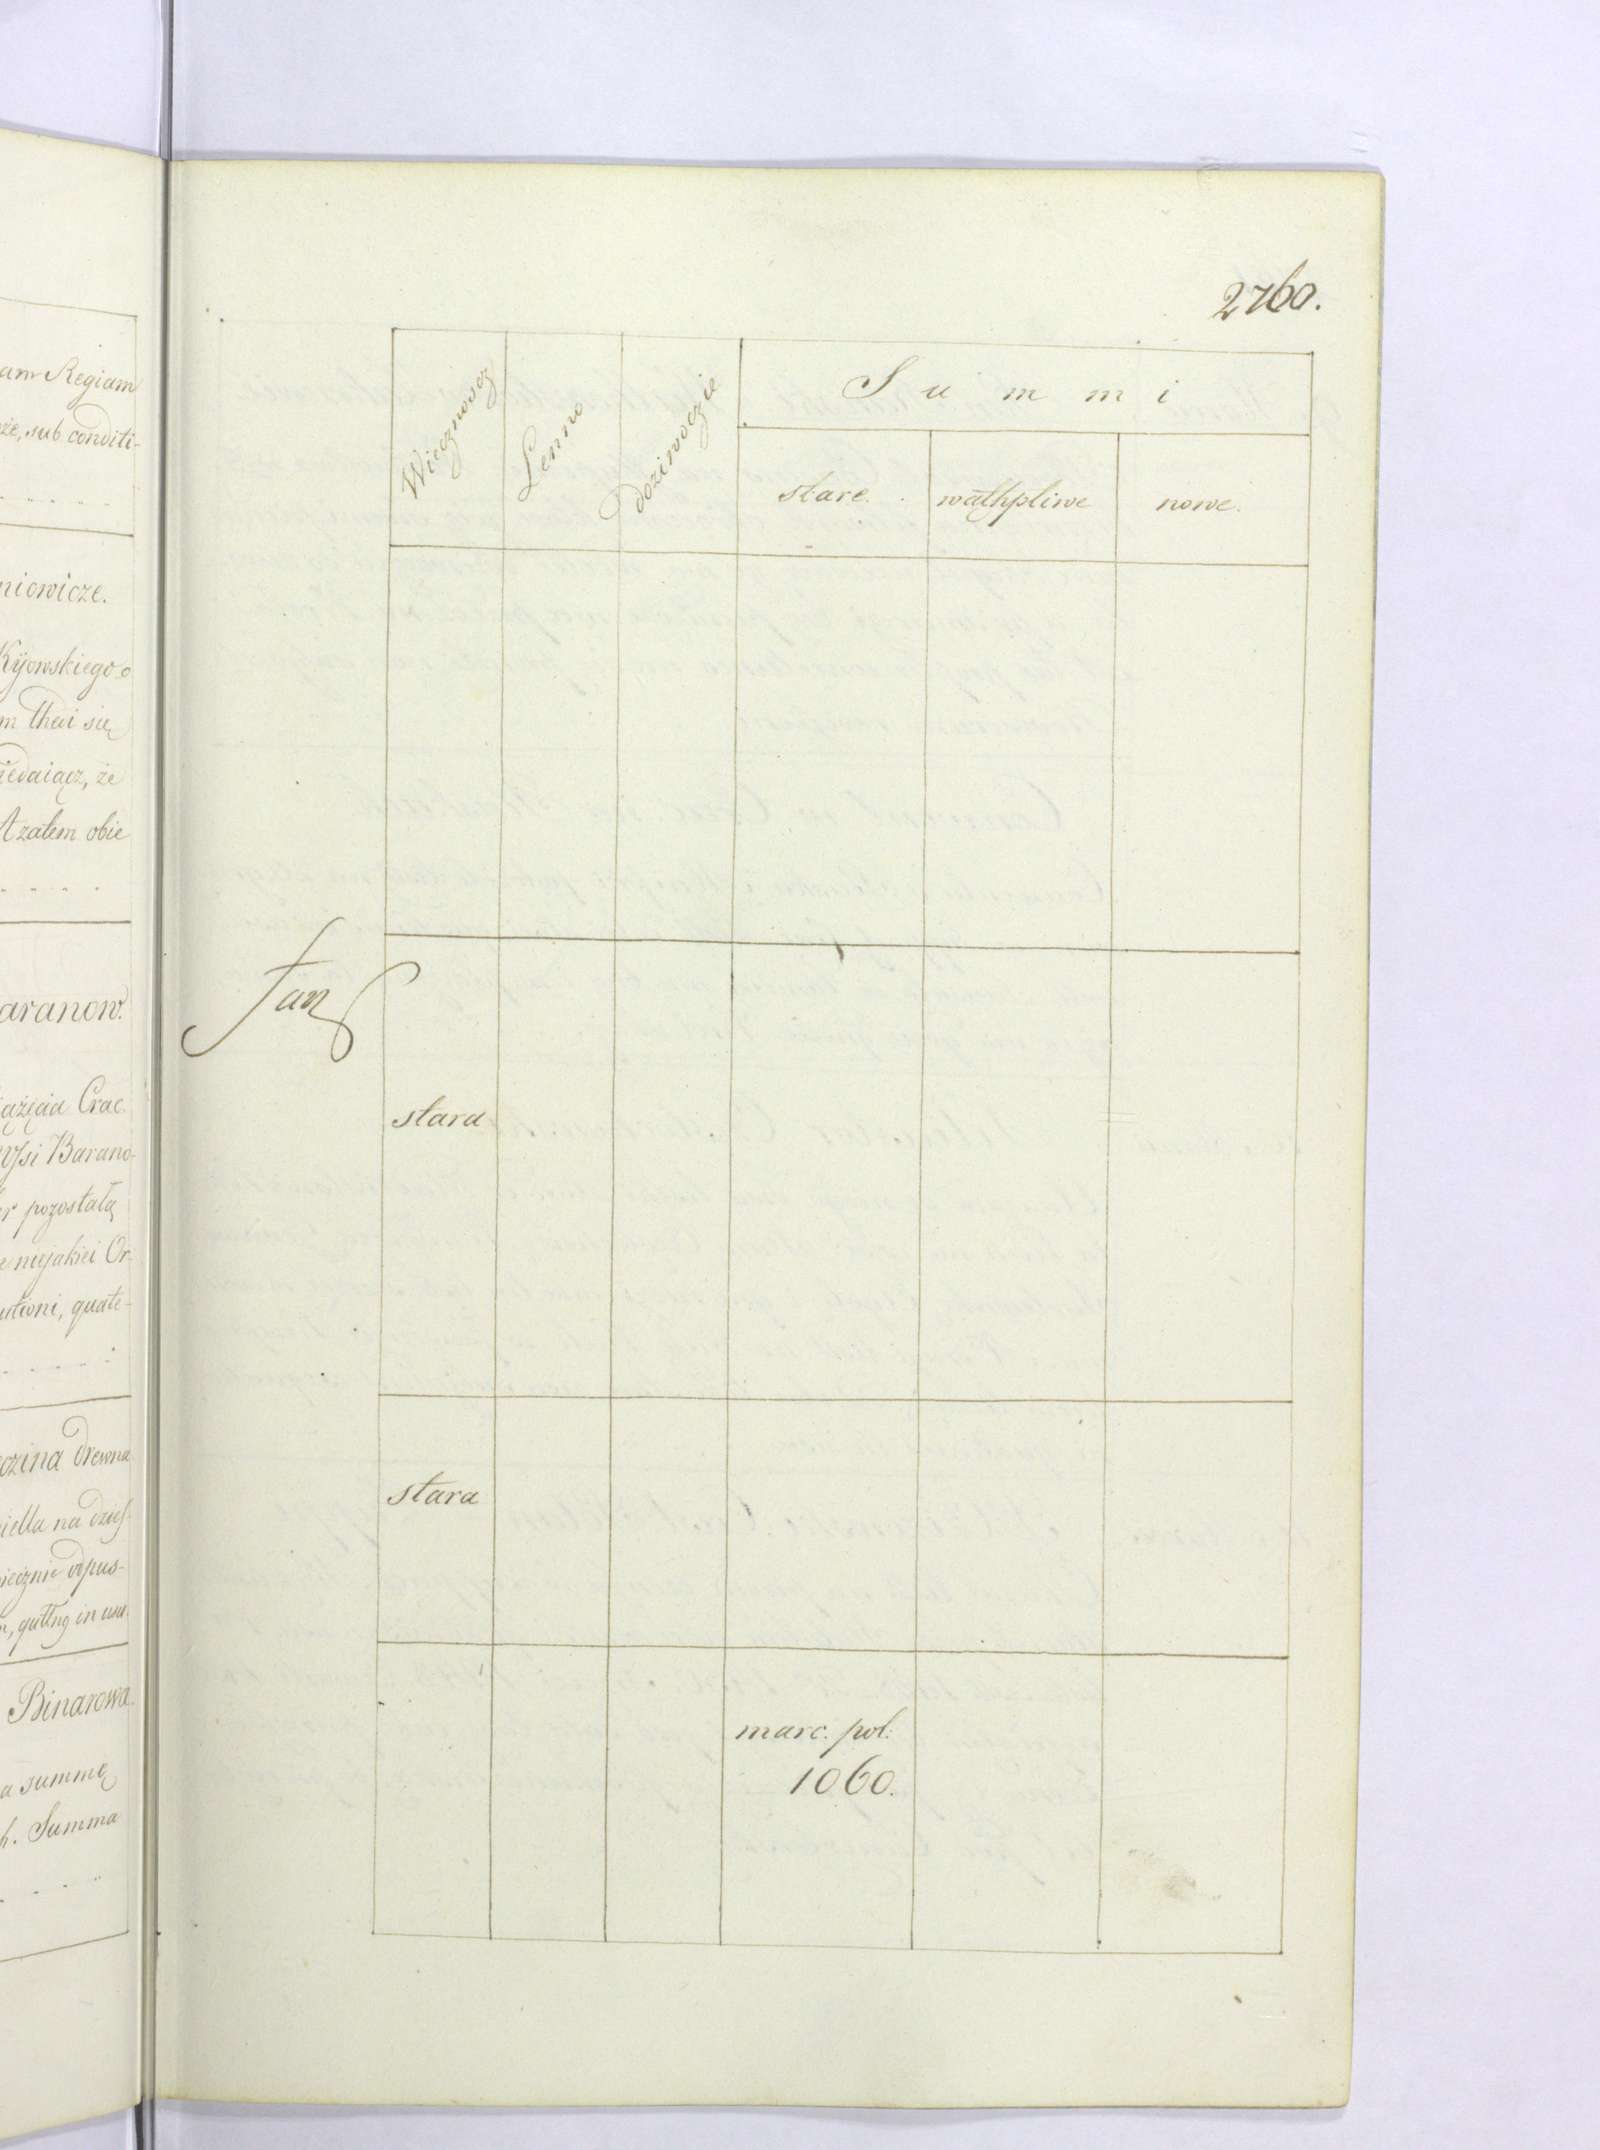 am Regiam
że, sub conditi-
niewicze.
Kijowskiego o
m thei się
iedaiącz, że
A zatem obie
aranow.
iążęcia Crac.
Wsi Barano-
r pozostałą
niejakiei Or-
utioni, quate-
ozina drewna
iella na dzies-
iecznie odpus-
, quttng in usu
Binarowa.
a summę
h. Summa
2760.
Wiecznoscz
Lenno
dożiwoczie
Summi
stare.
wathpliwe
nowe.
Jan
stara
stara
marc. pol.
1060.